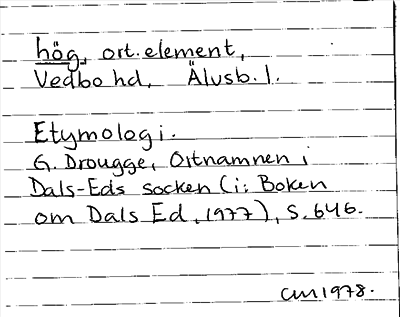 hög, ort.element,
Vedbo hd, Älvsb. l.
Etymologi.
G. Drougge, Ortnamnen i
Dals-Eds socken (i: Boken
om Dals Ed, 1977), s. 646.
CM 1978.